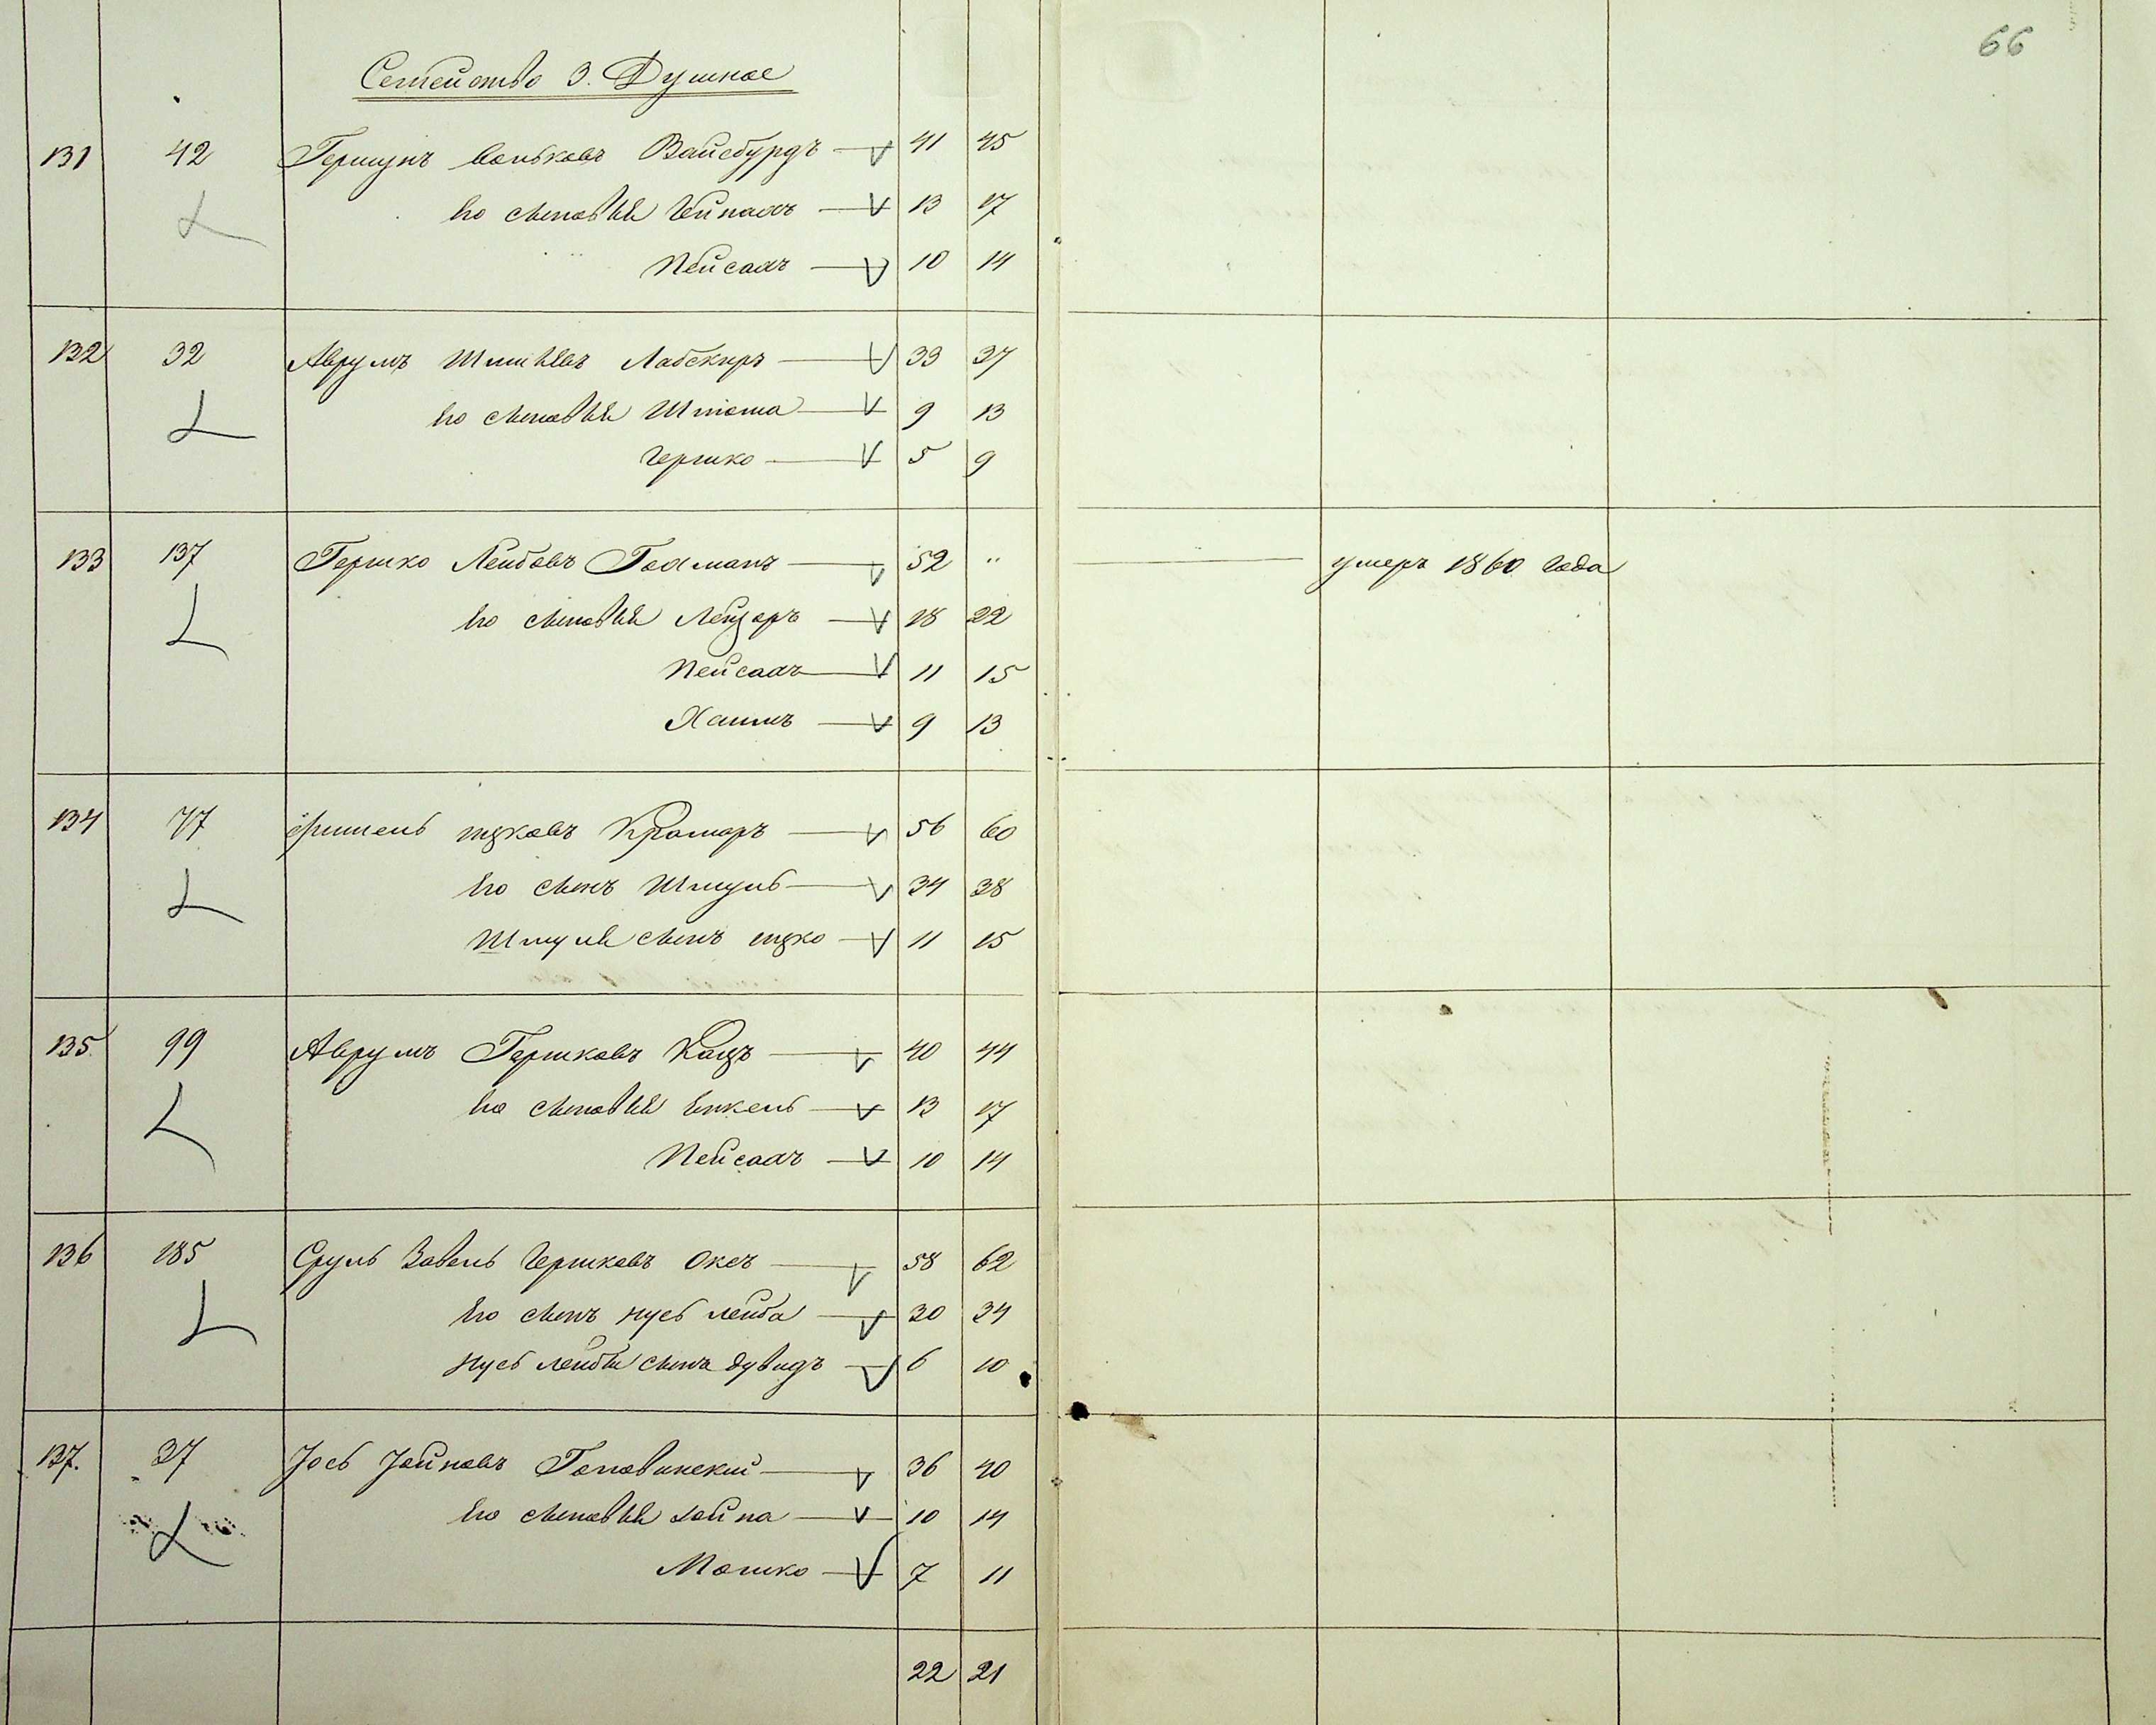 66
Семейство 3. Душное
131 42 Гершунъ Вольковъ Вайсбурдъ 41 45
Его сыновья Чейпахъ 13 17
Пейсахъ 10 14
132 32 Аврумъ Шміилевъ Лабскиръ 33 37
Его сыновья Шлiома 9 13
Гершко 5 9
133 137 Гершко Лейбовъ Гохманъ 52 " умеръ 1860 года
Его сыновья Лейзоръ 18 22
Пейсахъ 11 15
Хаимъ 9 13
134 77 Фишель ицковъ Крамаръ 56 60
Его сынъ Шмуль 34 38
Шмуля сынъ ицко 11 15
135 99 Аврумъ Гершковъ Кацъ 40 44
Его сыновья Енкель 13 17
Пейсахъ 10 14
136 185 Сруль Завель Гершковъ Оксъ 58 62
Его сынъ Нусь лейба 30 34
Нусь лейбы сынъ дувидъ 6 10
137. 37 Іось Іойновъ Головинскій 36 40
Его сыновья Іойна 10 14
Мошко 7 11
22 21